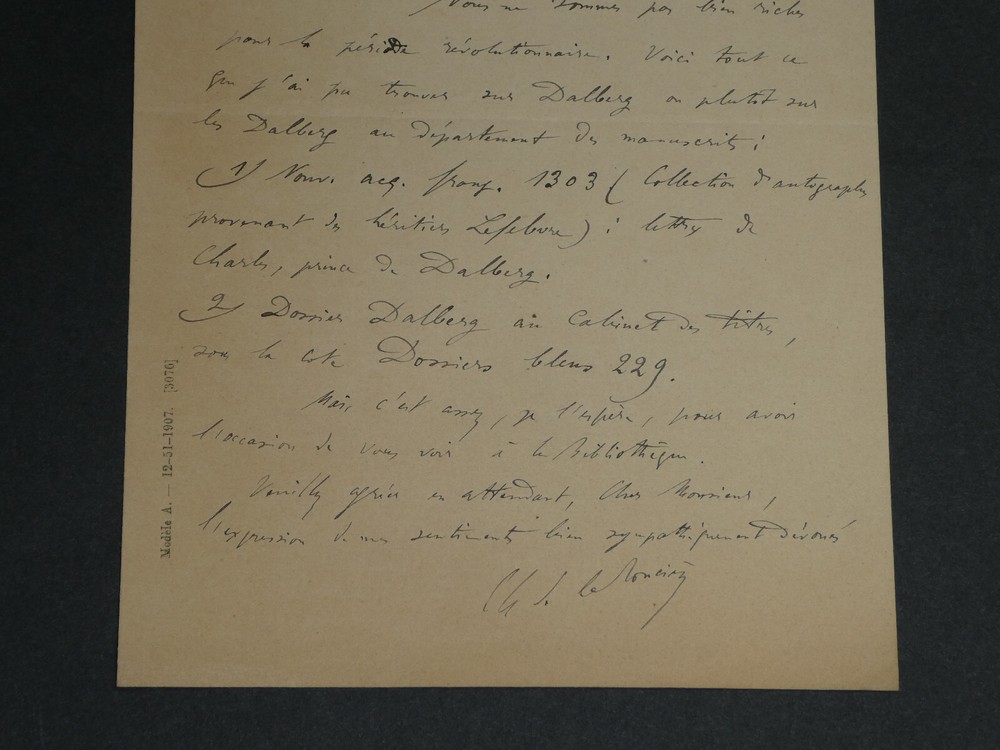 Nous ne sommes pas bien riches
pour la période révolutionnaire. Voici tout ce
que j'ai pu trouver sur Dalberg ou plutôt sur
les Dalberg au département des manuscrits :
1) Nouv. acq. franç. 1303 (Collection d'autographes
provenant des héritiers Lefebvre) : lettres de
Charles, prince de Dalberg.
2) Dossier Dalberg au Cabinet des titres,
sous la cote Dossiers bleus 229.
Mais c'est assez, je l'espère, pour avoir
l'occasion de vous voir à la Bibliothèque.
Veuillez agréer en attendant, Cher Monsieur,
l'expression de mes sentiments bien sympathiquement dévoués
Ch de la Roncière
Modèle A. — 12-51-1907. [3076]